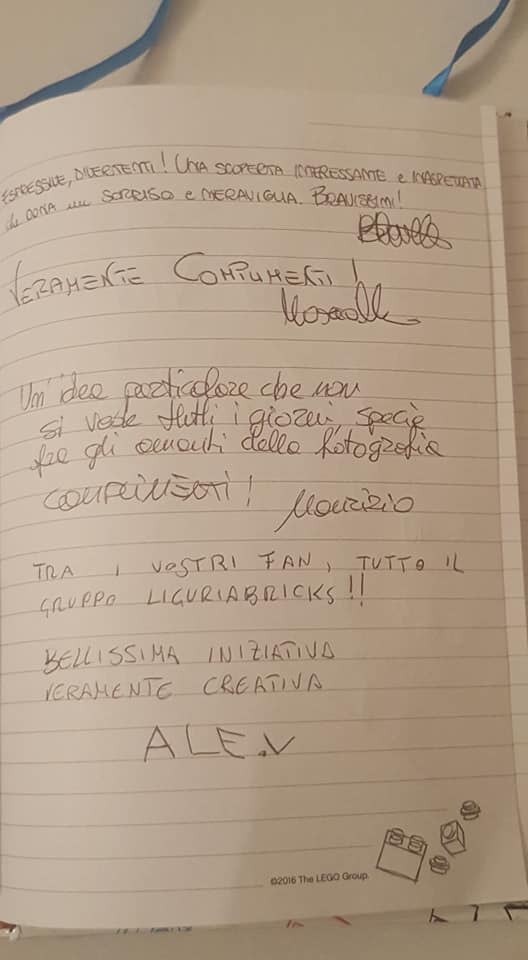 ESPRESSIVE, DIVERTENTI! UNA SCOPERTA INTERESSANTE e INASPETTATA
che DONA un SORRISO e MERAVIGLIA. BRAVISSIMI!
VERAMENTE COMPLIMENTI!
Un'idea particolare che non
si vede tutti i giorni, specie
fra gli amanti della fotografia
COMPLIMENTI! Maurizio
TRA I VOSTRI FAN, TUTTO IL
GRUPPO LIGURIABRICKS!!
BELLISSIMA INIZIATIVA
VERAMENTE CREATIVA
ALE.V
©2016 The LEGO Group.